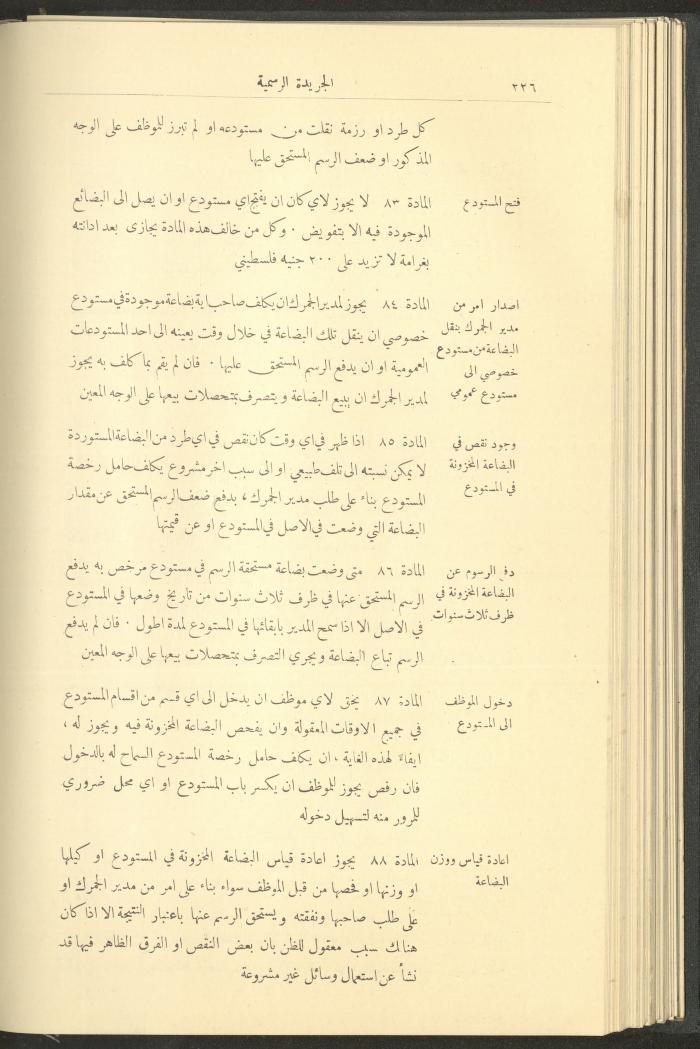 ٢٢٦
الجريدة الرسمية
كل طرد او رزمة نقلت من مستودعه او لم تبرز للموظف على الوجه
المذكور او ضعف الرسم المستحق عليها
فتح المستودع
المادة ٨٣ لا يجوز لاي كان ان يفتح اي مستودع او ان يصل الى البضائع
الموجودة فيه الا بتفويض ٠ وكل من خالف هذه المادة يجازى بعد ادانته
بغرامة لا تزيد على ٢٠٠ جنيه فلسطيني
اصدار امر من
مدير الجمرك بنقل
البضاعة من مستودع
خصوصي الى
مستودع عمومي
المادة ٨٤ يجوز لمدير الجمرك ان يكلف صاحب اية بضاعة موجودة في مستودع
خصوصي ان ينقل تلك البضاعة في خلال وقت يعينه الى احد المستودعات
العمومية او ان يدفع الرسم المستحق عليها ٠ فان لم يقم بما كلف به يجوز
لمدير الجمرك ان يبيع البضاعة ويتصرف بمتحصلات بيعها على الوجه المعين
وجود نقص في
البضاعة المخزونة
في المستودع
المادة ٨٥ اذا ظهر في اي وقت كان نقص في اي طرد من البضاعة المستوردة
لا يمكن نسبته الى تلف طبيعي او الى سبب اخر مشروع يكلف حامل رخصة
المستودع بناء على طلب مدير الجمرك ، بدفع ضعف الرسم المستحق عن مقدار
البضاعة التي وضعت في الاصل في المستودع او عن قيمتها
دفع الرسوم عن
البضاعة المخزونة في
ظرف ثلاث سنوات
المادة ٨٦ متى وضعت بضاعة مستحقة الرسم في مستودع مرخص به يدفع
الرسم المستحق عنها في ظرف ثلاث سنوات من تاريخ وضعها في المستودع
في الاصل الا اذا سمح المدير بابقائها في المستودع لمدة اطول ٠ فان لم يدفع
الرسم تباع البضاعة ويجري التصرف بمتحصلات بيعها على الوجه المعين
دخول الموظف
الى المستودع
المادة ٨٧ يحق لاي موظف ان يدخل الى اي قسم من اقسام المستودع
في جميع الاوقات المعقولة وان يفحص البضاعة المخزونة فيه ويجوز له ،
ايفاءً لهذه الغاية ، ان يكلف حامل رخصة المستودع السماح له بالدخول
فان رفض يجوز للموظف ان يكسر باب المستودع او اي محل ضروري
للمرور منه لتسهيل دخوله
اعادة قياس ووزن
البضاعة
المادة ٨٨ يجوز اعادة قياس البضاعة المخزونة في المستودع او كيلها
او وزنها او فحصها من قبل الموظف سواء بناء على امر من مدير الجمرك او
على طلب صاحبها ونفقته ويستحق الرسم عنها باعتبار النتيجة الا اذا كان
هنالك سبب معقول للظن بان بعض النقص او الفرق الظاهر فيها قد
نشأ عن استعمال وسائل غير مشروعة